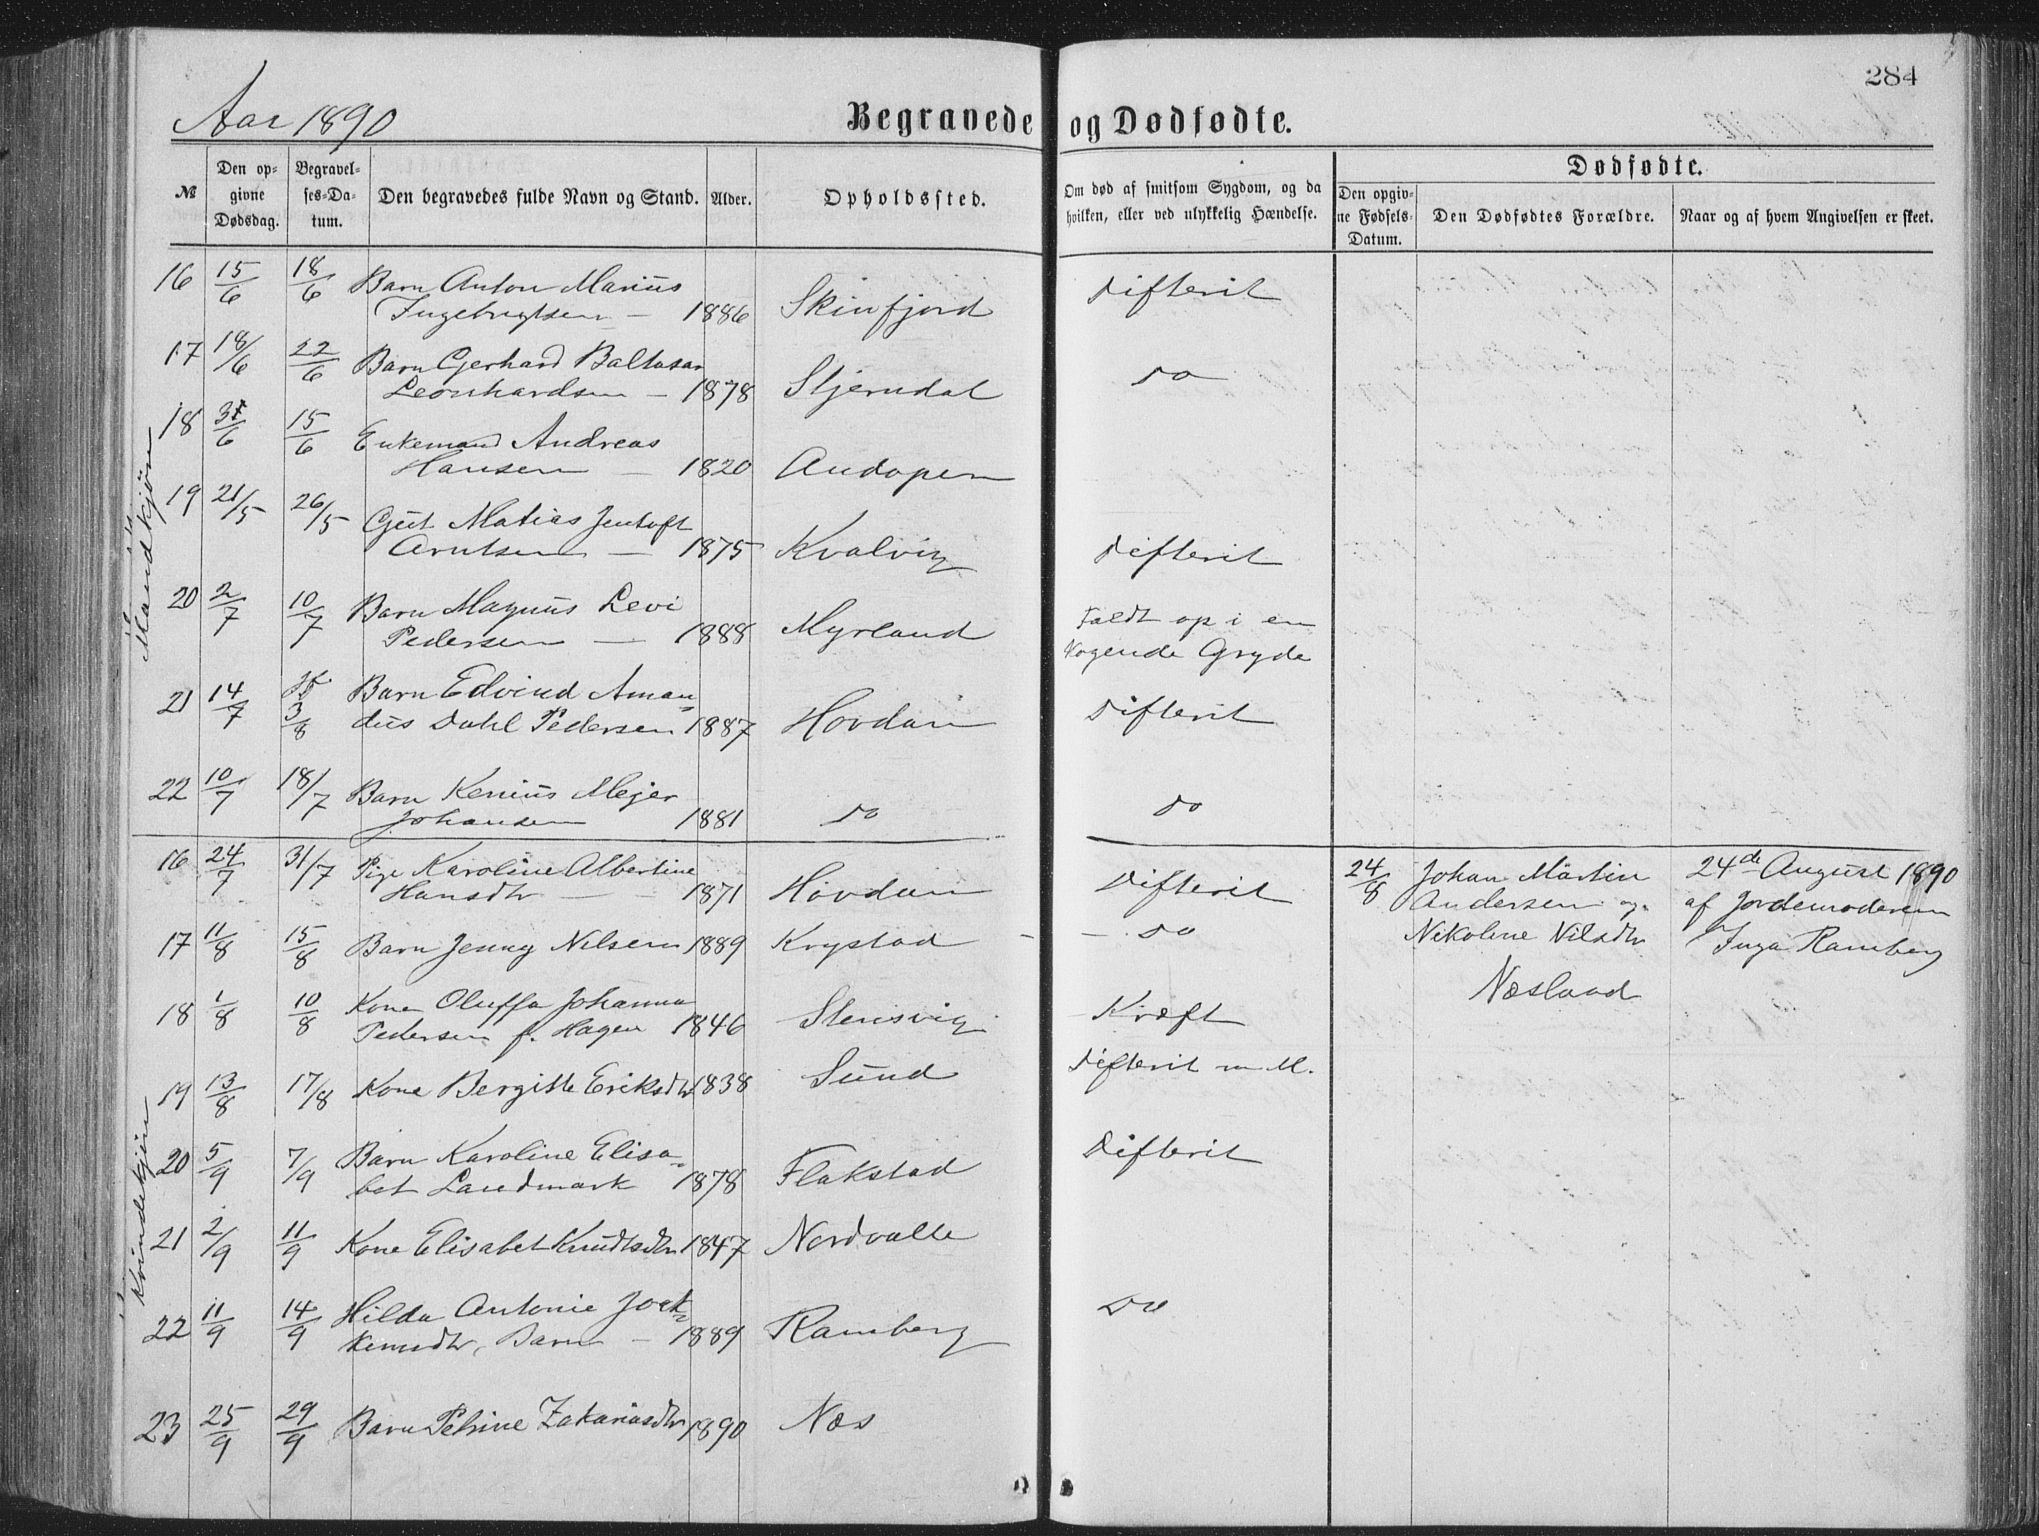 284
Aar 1890
Begravede og Dødfødte.
Dødfødte.
№
Den op-
givne
Dødsdag.
Begravel-
ses-Da-
tum.
Den begravedes fulde Navn og Stand.
Alder.
Opholdssted.
Om død af smitsom Sygdom, og da
hvilken, eller ved ulykkelig Hændelse.
Den opgiv-
ne Fødsels-
Datum.
Den Dødfødtes Forældre.
Naar og af hvem Angivelsen er skeet.
Mandkjøn
16 15/6 18/6 Barn Anton Marius
Ingebrigtsen — 1886 Skinfjord Difterit
17 18/6 22/6 Barn Gerhard Baltasar
Leonhardsen — 1878 Stjerndal do
18 15/6 Enkemand Andreas
Hansen — 1820 Andopen
19 21/5 26/5 Gut Matias Jentoft
Arntsen — 1875 Kvalvig Difterit
20 2/7 10/7 Barn Magnus Levi
Pedersen — 1888 Myrland Faldt op i en
kogende Gryde
21 14/7 3/8 Barn Edvind Aman-
dus Dahl Pedersen 1887 Hovdan Difterit
22 10/7 18/7 Barn Kenius Mejer
Johansen 1881 do do
Kvindekjøn
16 24/7 31/7 Pige Karoline Albertine
Hansdtr — 1871 Hovdan Difterit
24/8 Johan Martin
Andersen og
Nikoline Nilsdtr
Næsland
24de August 1890
af Jordemoderen
Inga Ramberg
17 11/8 15/8 Barn Jenny Nilsen 1889 Krystad — do
18 1/8 10/8 Kone Oluffa Johanna
Pedersen f. Hagen 1846 Stensvig Kræft
19 13/8 17/8 Kone Bergitte Eriksdtr 1838 Sund Difterit m M.
20 5/9 7/9 Barn Karoline Elisa-
bet Landmark 1878 Flakstad Difterit
21 2/9 11/9 Kone Elisabet Knudtsdtr 1847 Nordvalle
22 11/9 14/9 Hilda Antonie Joak-
kimsdtr, Barn — 1889 Ramberg do
23 25/9 29/9 Barn Petrine Zakariasdtr 1890 Næs